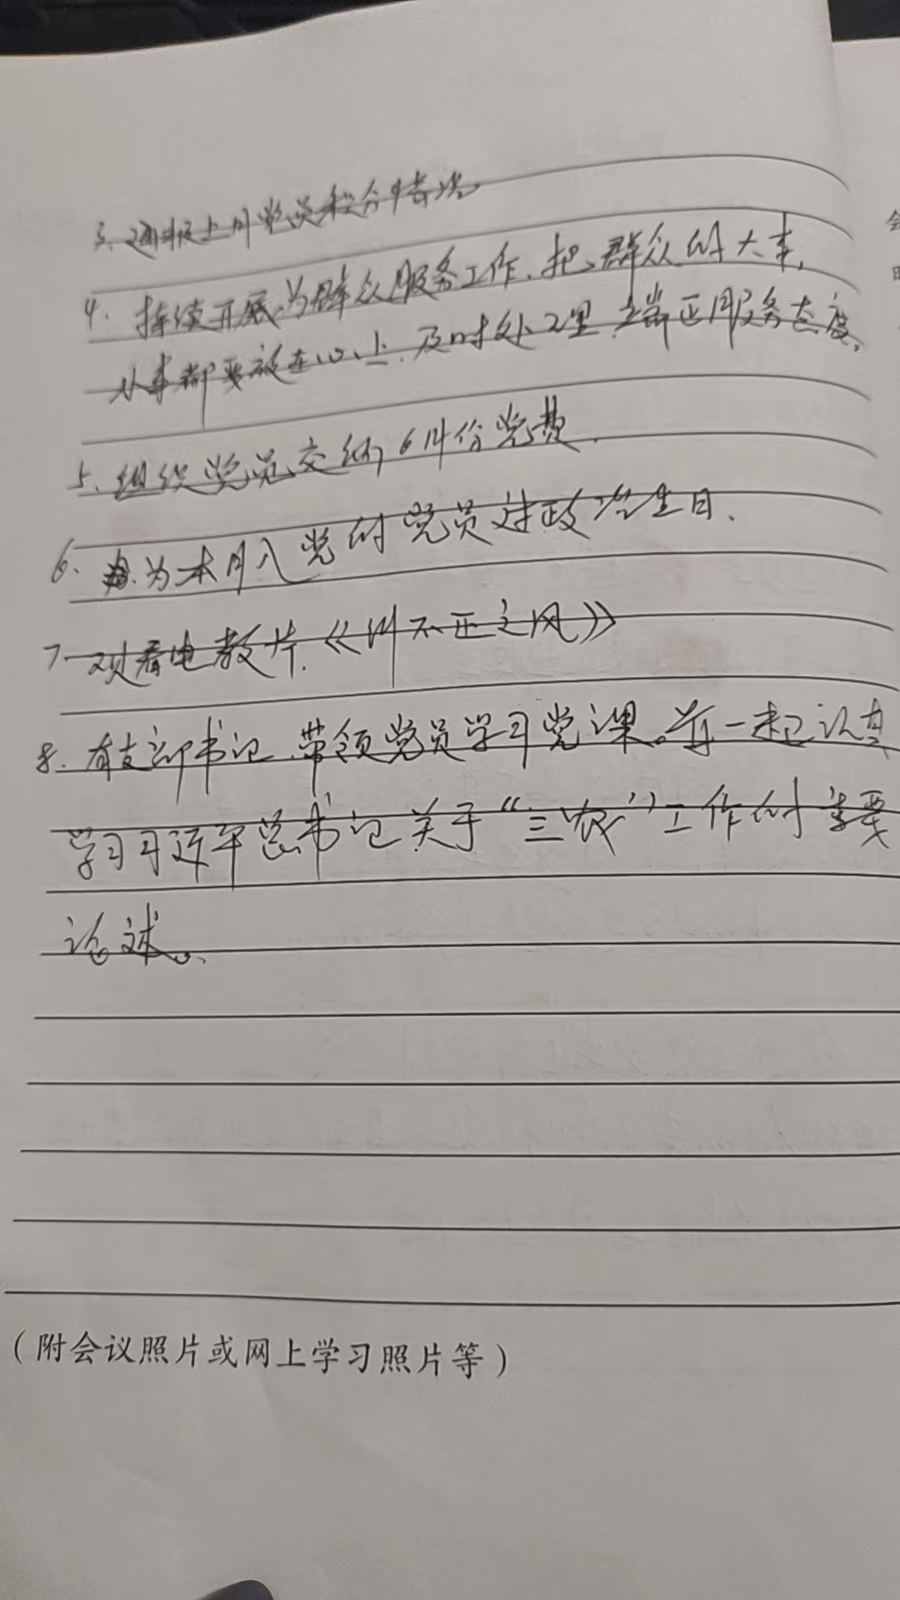 3、通报上月党员积分情况
4、持续开展为群众服务工作、把群众的大事,
从事都要放在心上、及时处理、端正服务态度,
5、组织党员交纳6月份党费.
6、为本月入党的党员过政治生日.
7、观看电教片、《川不正之风》
8、有支部书记、带领党员学习党课。并一起认真
学习习近平总书记关于“三农”工作的重要
论述。
(附会议照片或网上学习照片等)
会
时